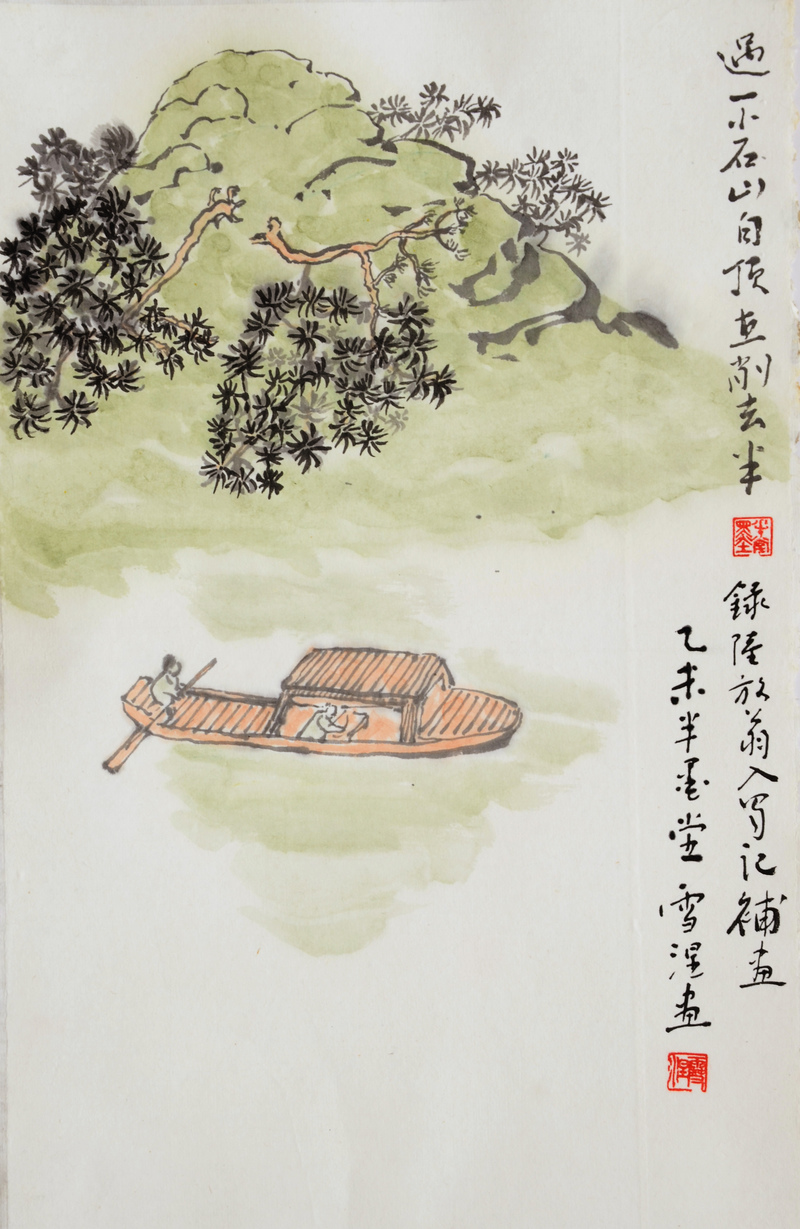 過一小石山自頂直削去半
録陸放翁入蜀記補畫
乙未半墨堂雪涅畫